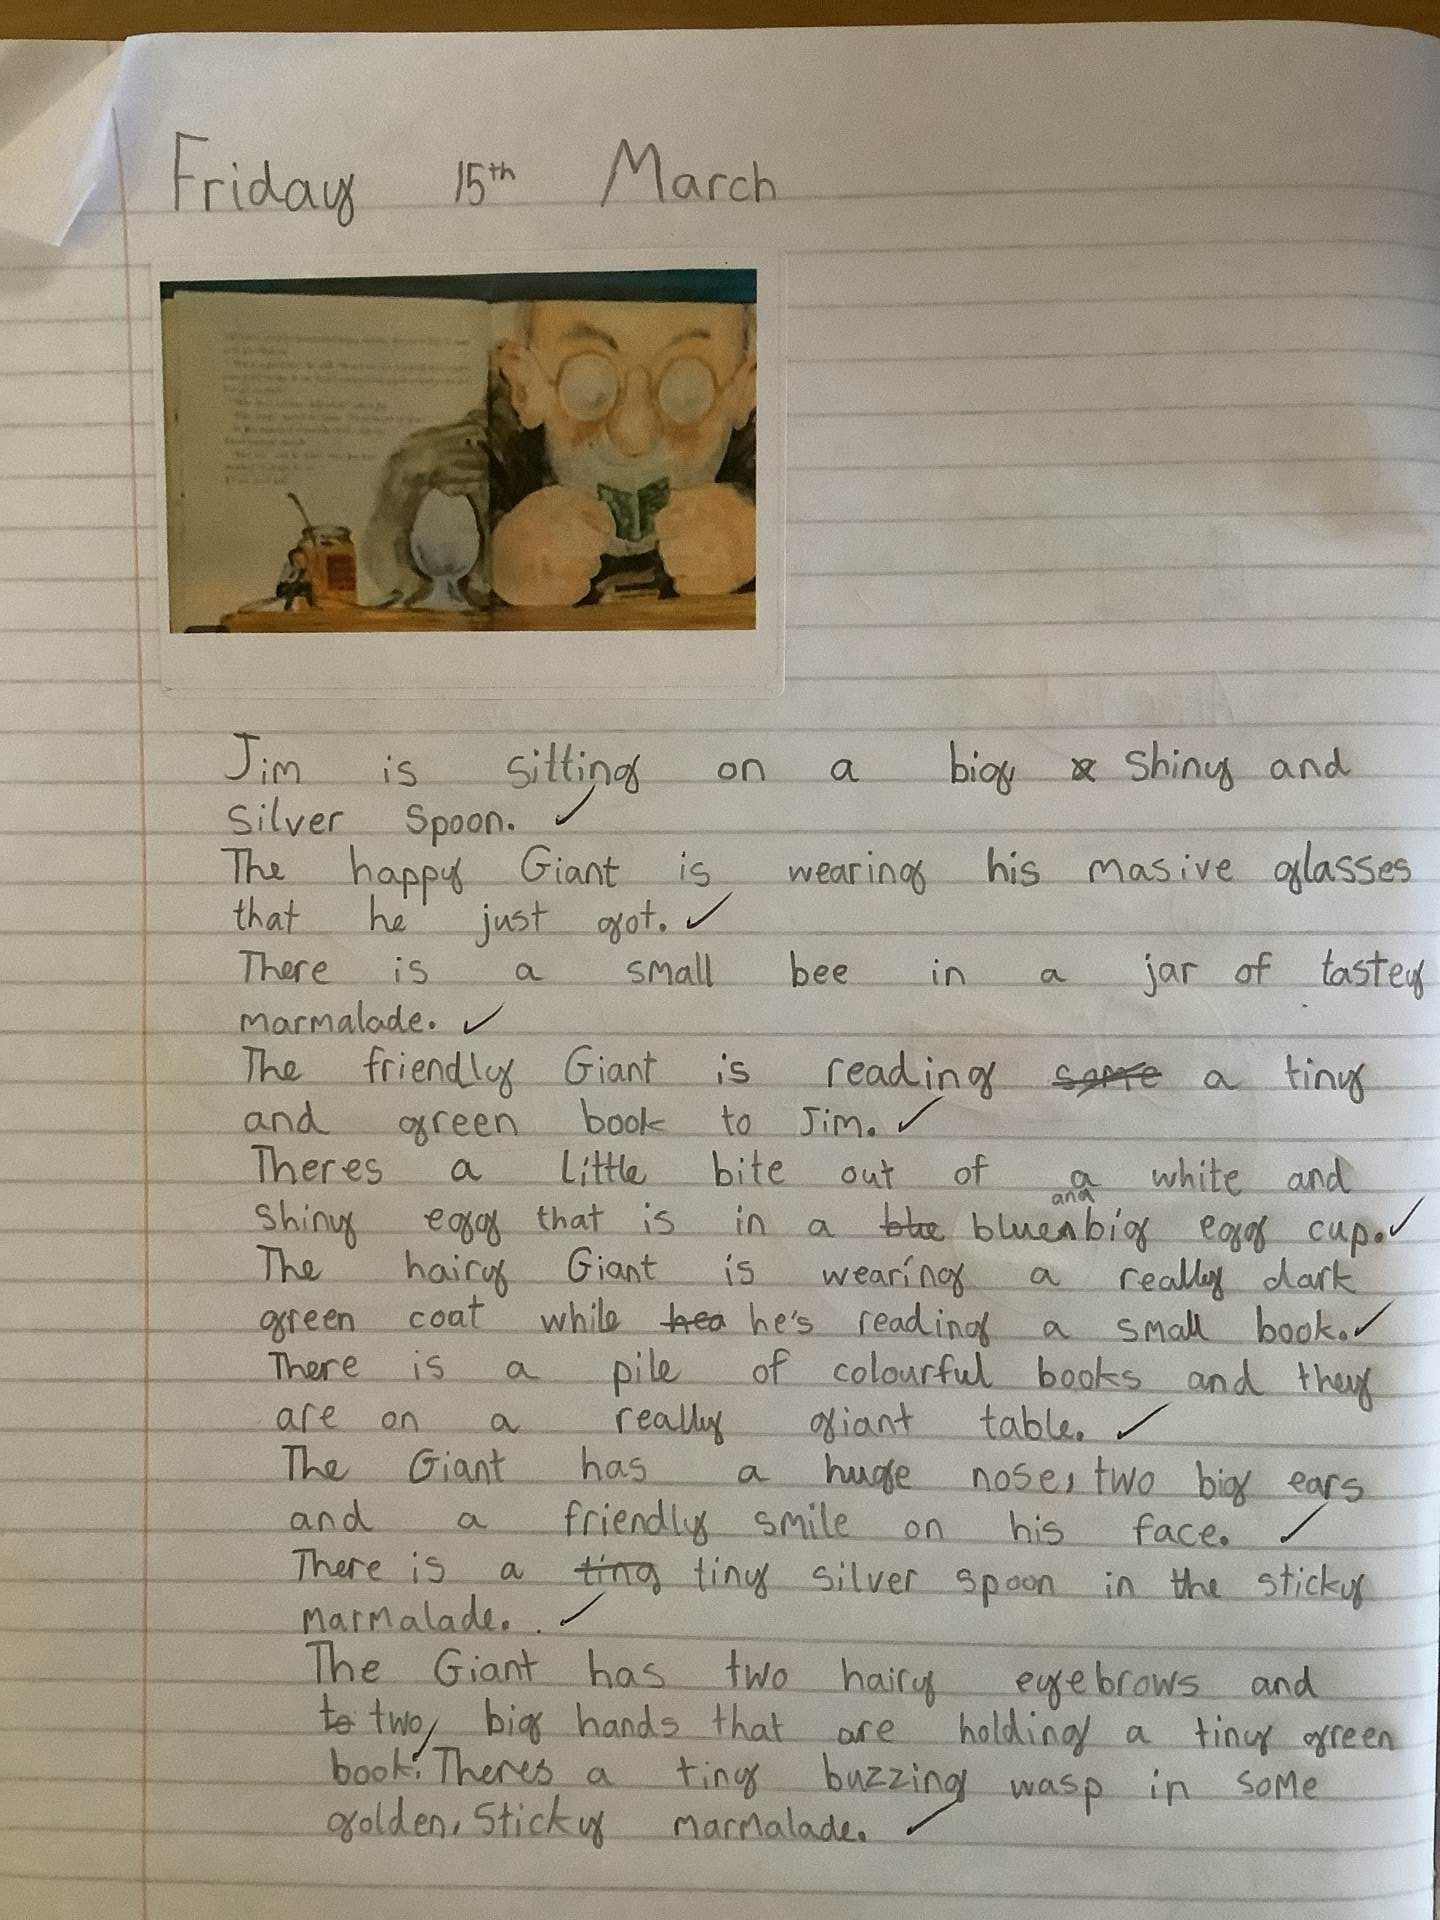 Friday 15th March
Jim is sitting on a big shiny and
silver spoon.
The happy Giant is wearing his masive glasses
that he just got.
There is a small bee in a jar of tastey
marmalade.
The friendly Giant is reading some a tiny
and green book to Jim.
Theres a little bite out of a white and
shiny egg that is in a blue and big egg cup.
The hairy Giant is wearing a really dark
green coat while he's reading a small book.
There is a pile of colourful books and they
are on a really giant table.
The Giant has a huge nose, two big ears
and a friendly smile on his face.
There is a ting tiny silver spoon in the sticky
marmalade.
The Giant has two hairy eyebrows and
to two big hands that are holding a tiny green
book. Theres a tiny buzzing wasp in some
golden, sticky marmalade.